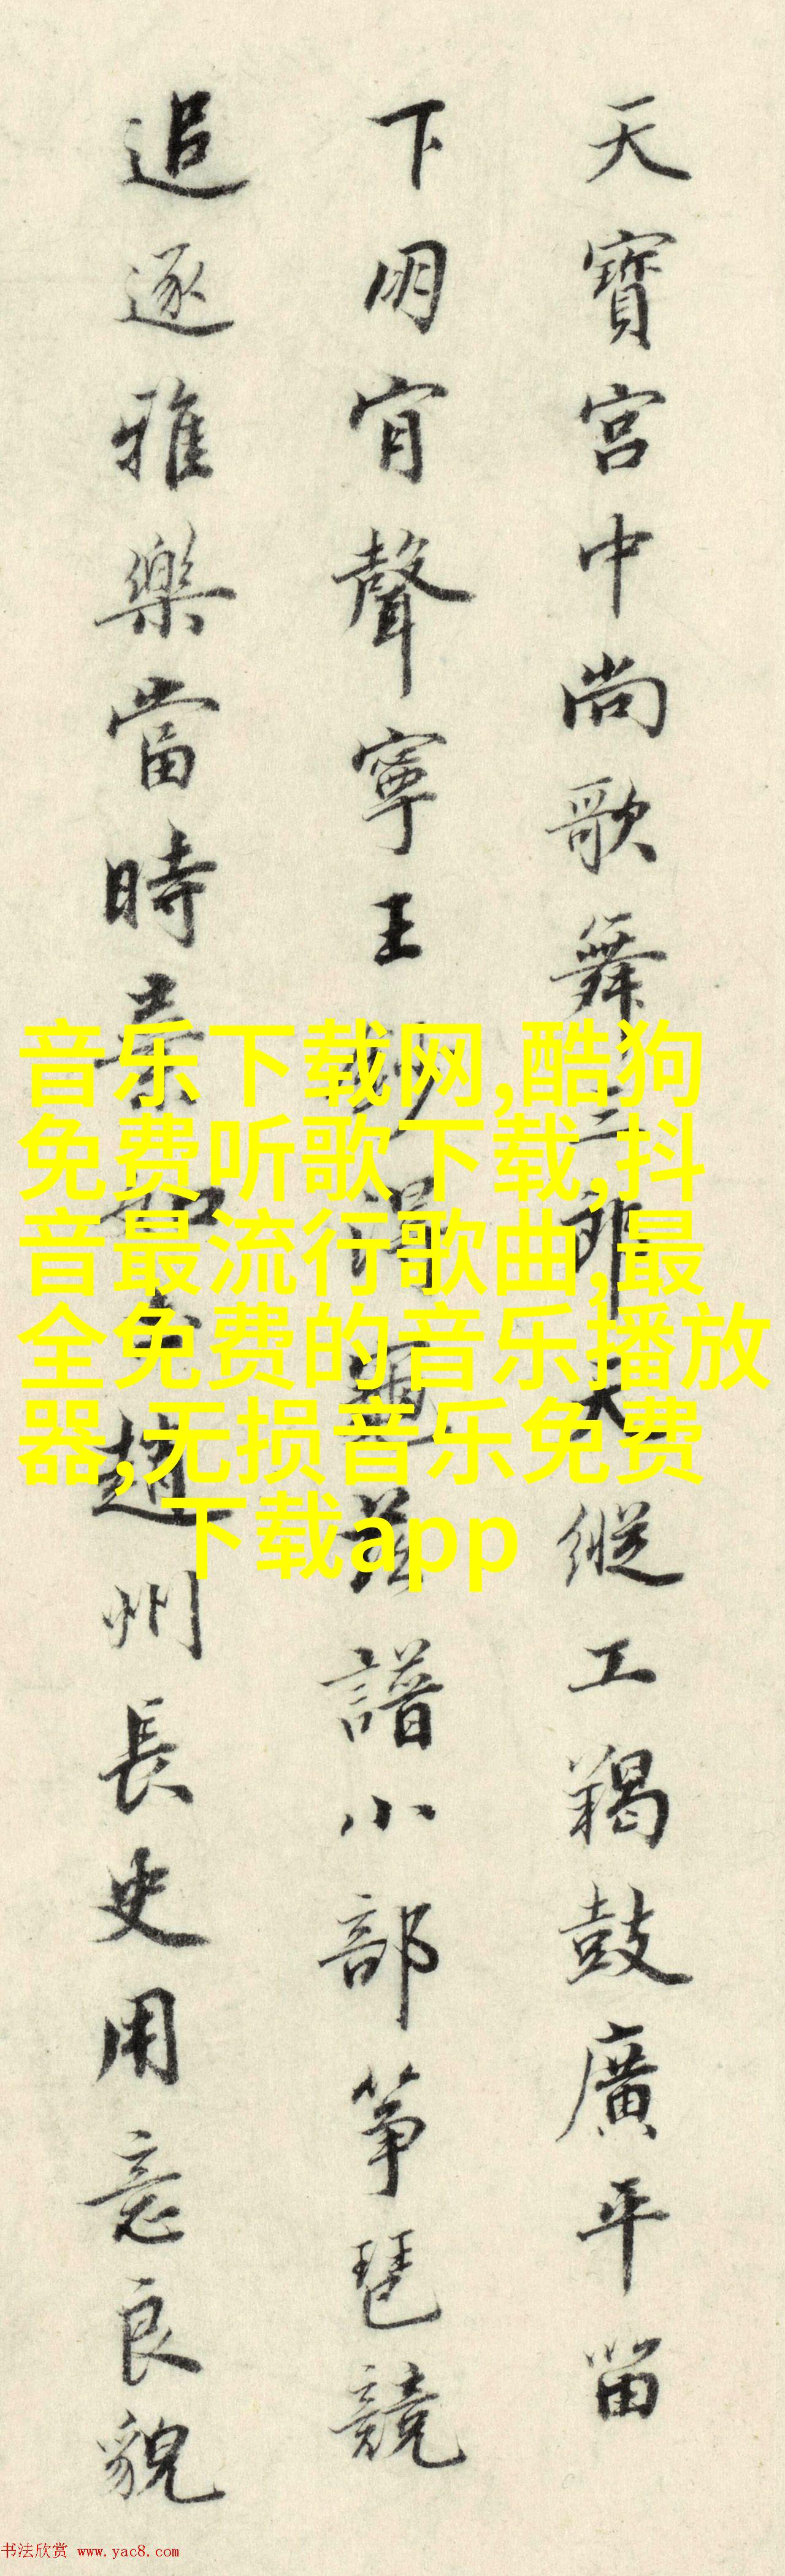 天寶宮中尚歌舞三郎天縱工羯鼓廣平留
下朋肎聲寧王妙得龜茲譜小部箏琶競
追逐雅樂當時棄如土趙州長史用意良貌
音乐下载网,酷狗
免费听歌下载,抖
音最流行歌曲,最
全免费的音乐播放
器,无损音乐免费
下载app
书法欣赏 www.yac8.com